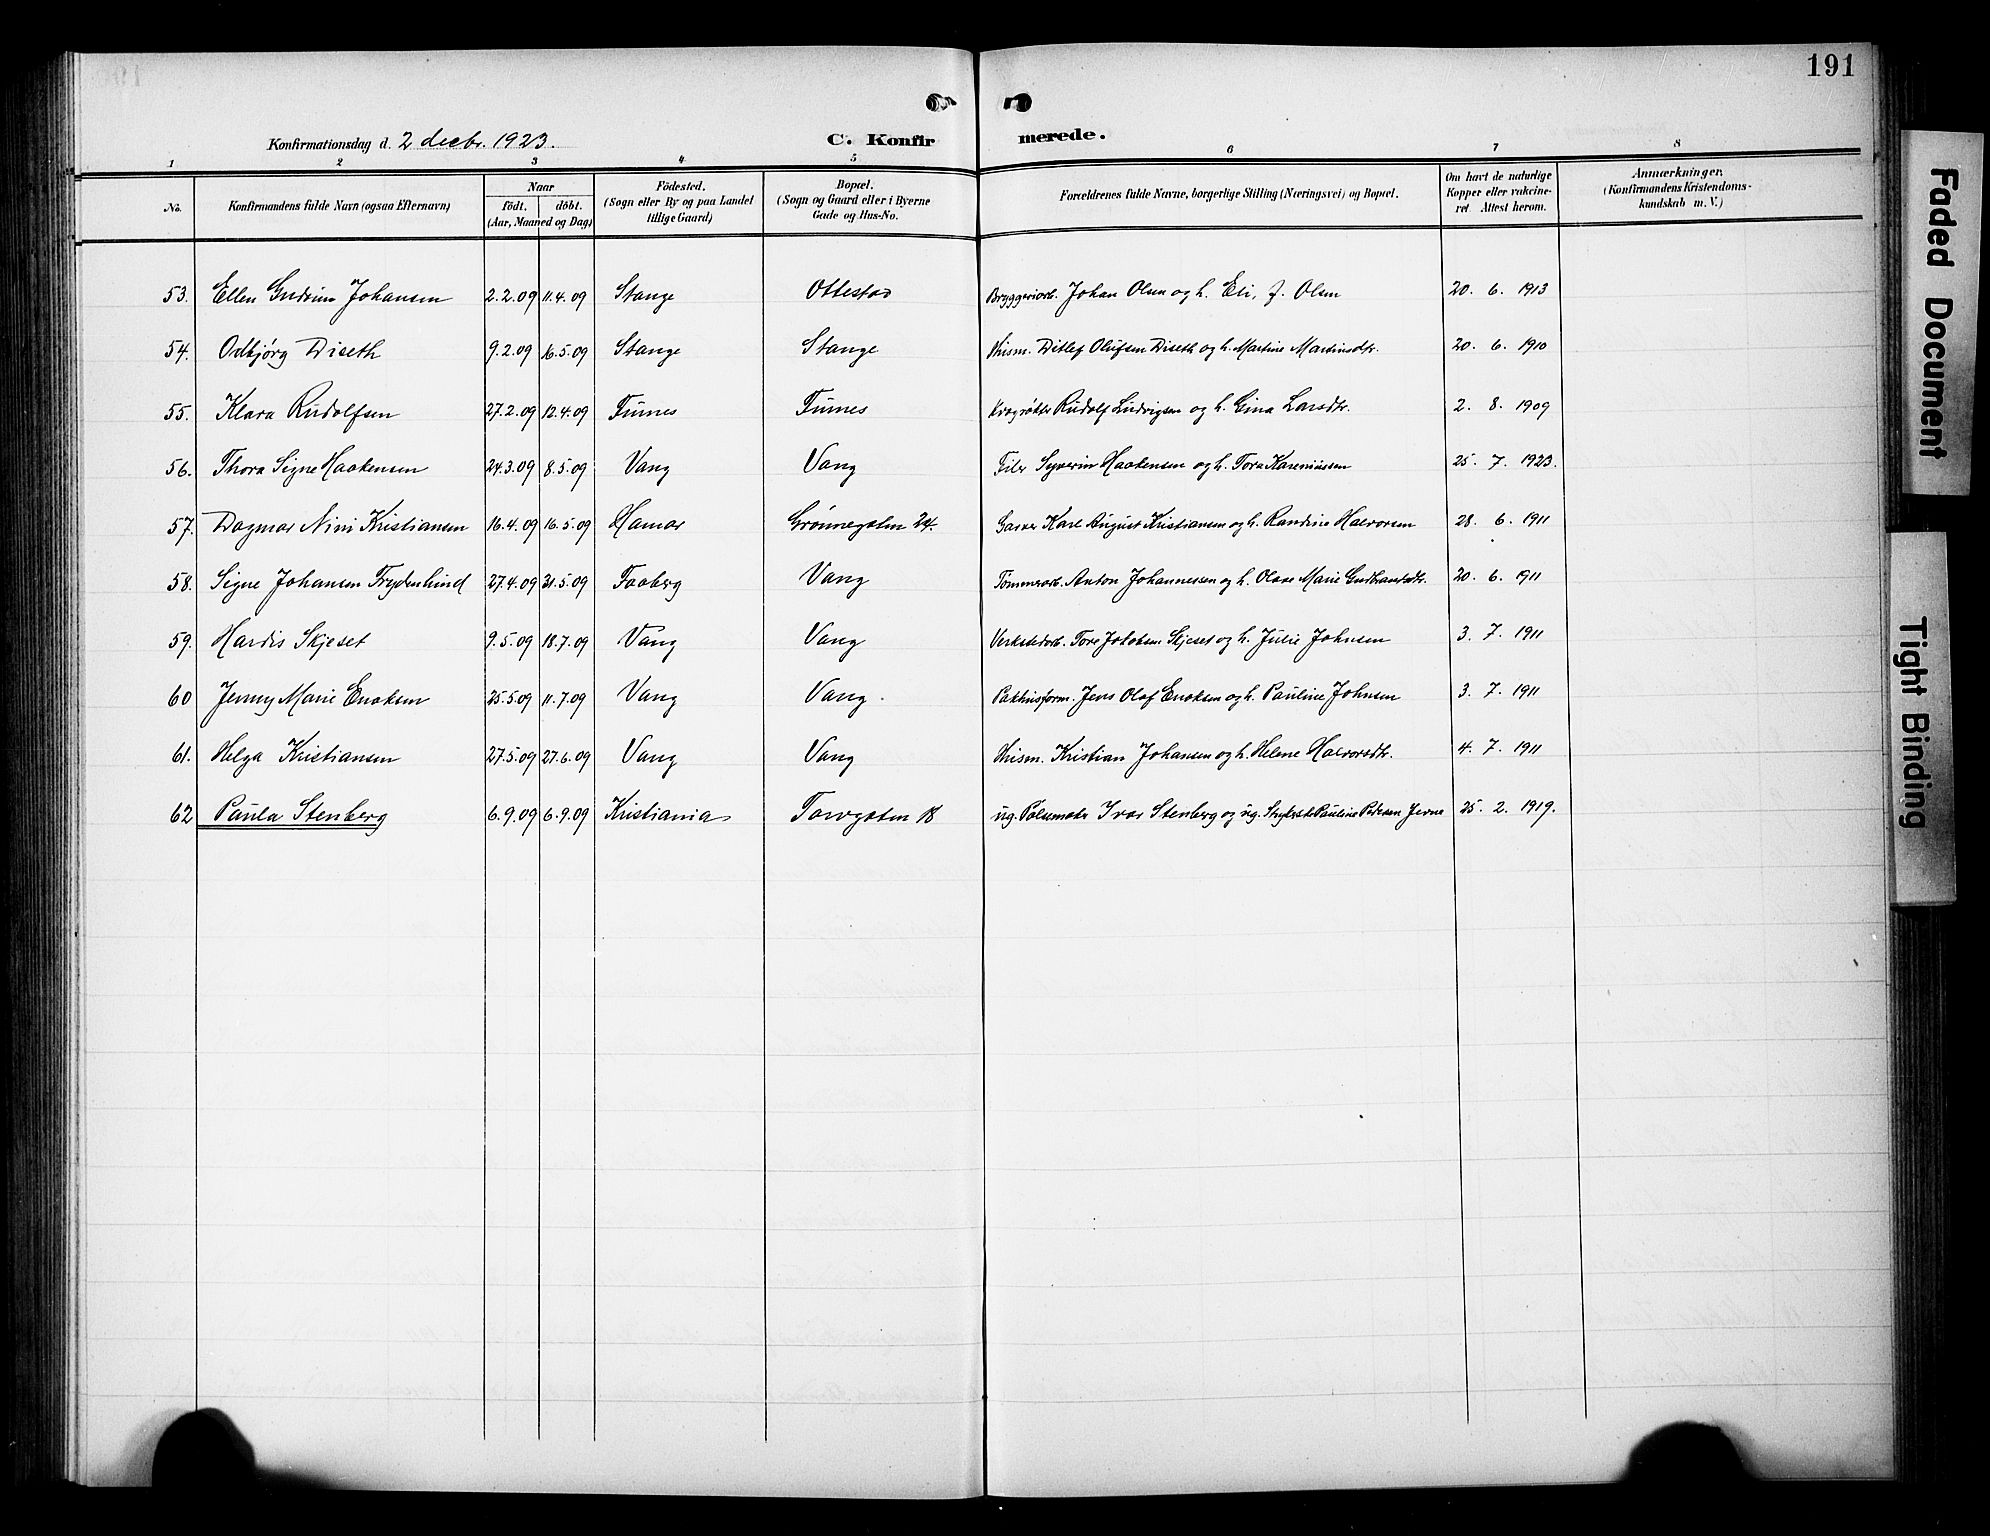 191
Konfirmationsdag d. 2 decbr. 1923.
C. Konfirmerede.
1 2 3 4 5 6 7 8
No. Konfirmandens fulde Navn (ogsaa Efternavn) Naar Födt. döbt. (Aar, Maaned og Dag) Födested. (Sogn eller By og paa Landet tillige Gaard) Bopæl. (Sogn og Gaard eller i Byerne Gade og Hus-No. Forældrenes fulde Navne, borgerlige Stilling (Næringsvei) og Bopæl. Om havt de naturlige Kopper eller vakcineret. Attest herom. Anmærkninger. (Konfirmandens Kristendomskundskab m. V.)
53. Ellen Gudrun Johansen 2.2.09 11.4.09 Stange Ottestad Bryggeriarb. Johan Olsen og h. Eli, f. Olsen 20. 6. 1913
54. Odbjørg Diseth 9.2.09 16.5.09 Stange Stange Husm. Ditlef Olufsen Diseth og h. Martine Martinsdtr. 20. 6. 1910
55. Klara Rudolfsen 27.2.09 12.4.09 Furnes Furnes Rudolf Ludvigsen og h. Gina Larsdtr. 2. 8. 1909
56. Thora Signe Haakensen 24.3.09 8.5.09 Vang Vang Filer Syverin Haakensen og h. Tora Kareniussen 25. 7. 1923.
57. Dagmar Nini Kristiansen 16.4.09 16.5.09 Hamar Grønnegaten 24. Garver Karl August Kristiansen og h. Randine Halvorsen 28. 6. 1911
58. Signe Johansen Frydenlund 27.4.09 31.5.09 Faaberg Vang Tømmerarb. Anton Johannessen og h. Olave Marie Gudbrandsdtr. 20. 6. 1911
59. Hardis Skjeset 9.5.09 18.7.09 Vang Vang Verkstedarb. Tore Jakobsen Skjeset og h. Julie Johnsen 3. 7. 1911
60 Jenny Marie Enoksen 25.5.09 11.7.09 Vang Vang. Pakhusform. Jens Olaf Enoksen og h. Pauline Johnsen 3. 7. 1911
61. Helga Kristiansen 27.5.09 27.6.09 Vang Vang Husm. Kristian Johansen og h. Helene Halvorsdtr. 4. 7. 1911
62 Paula Stenberg 6.9.09 6.9.09 Kristiania Torvgaten 18 ug. Pølsemaker Ivar Stenberg og ug. Strykerske Pauline Pedersen Jevne 25. 2. 1919.
Faded Document
Tight Binding